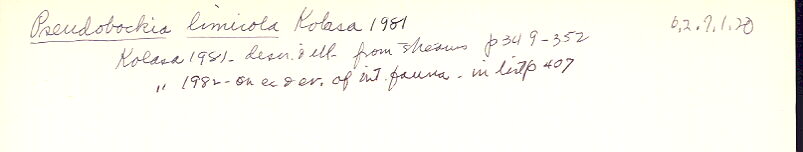 Pseudobockia limicola Kolasa 1981 6,2.9.1.20
Kolasa 1981 - descr. & ill. from streams p 349-352
" 1982 - on ec & ev. of int. fauna - in list p 407